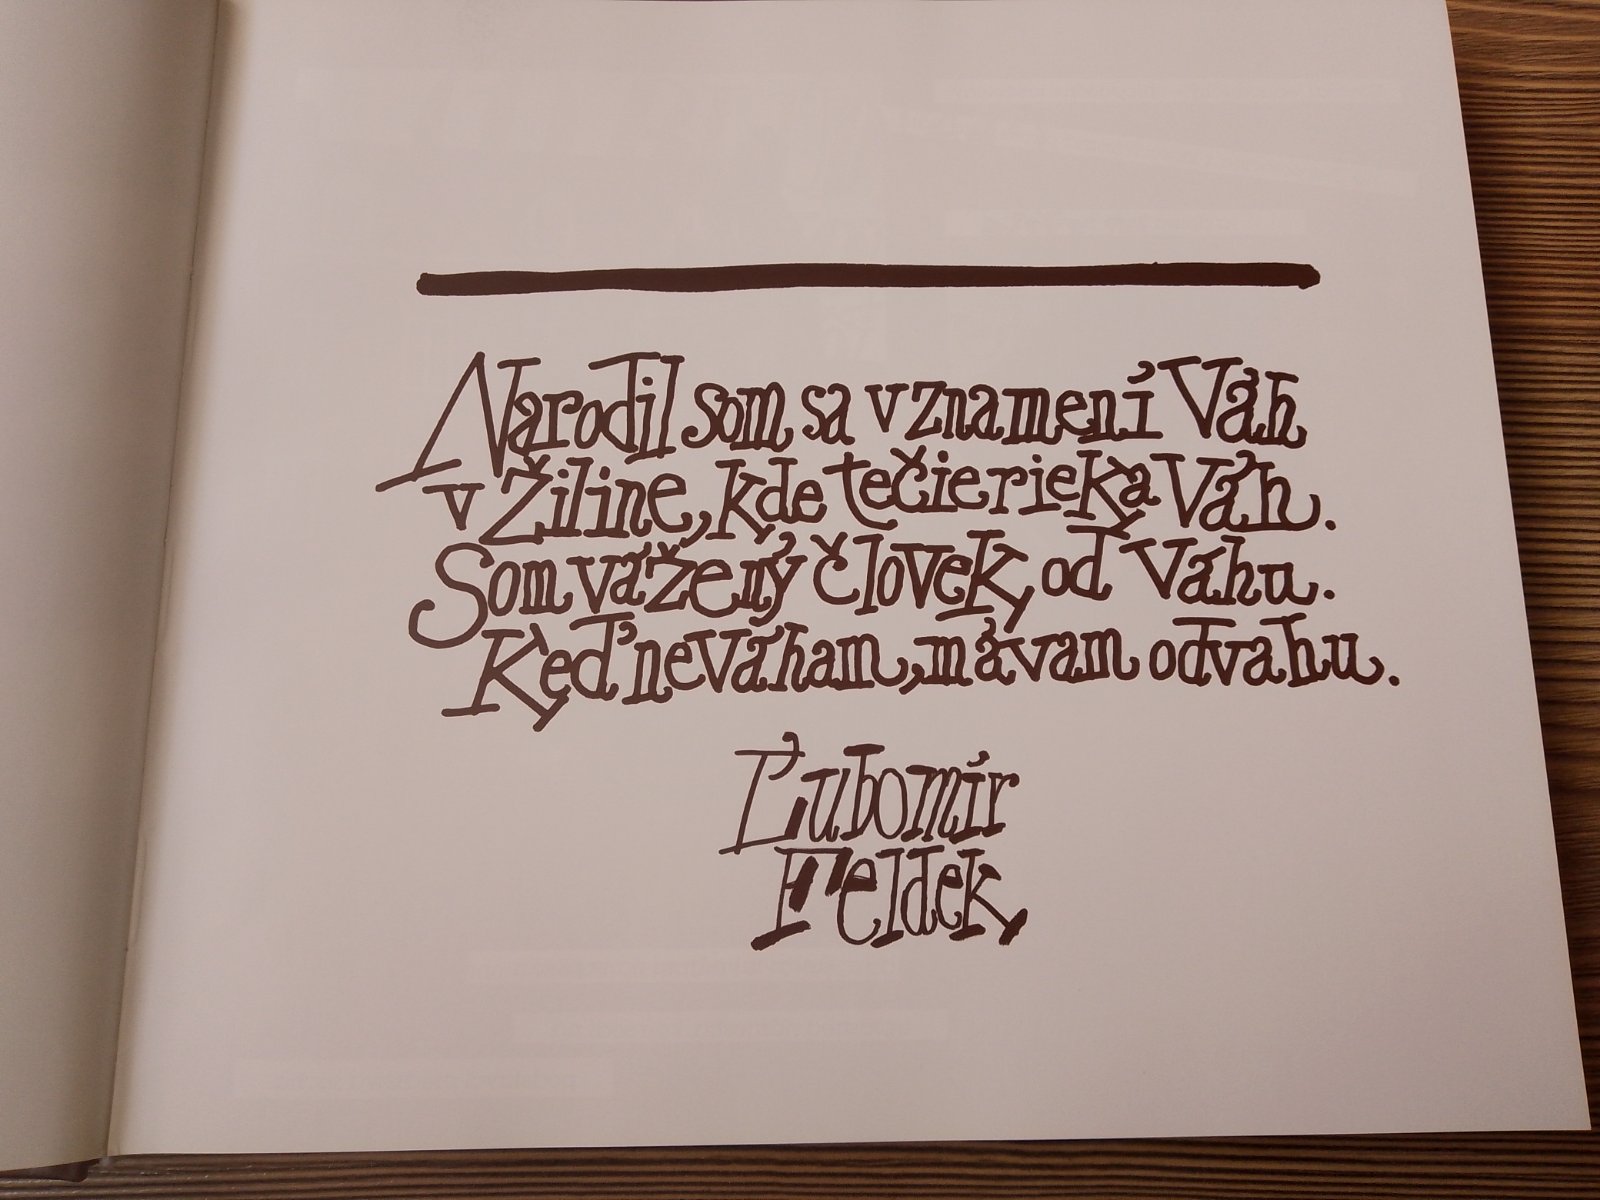 Narodil som sa v znamení Váh
v Žiline, kde tečie rieka Váh.
Som vážený človek od Váhu.
Keď neváham, mávam odvahu.
Ľubomír
Feldek